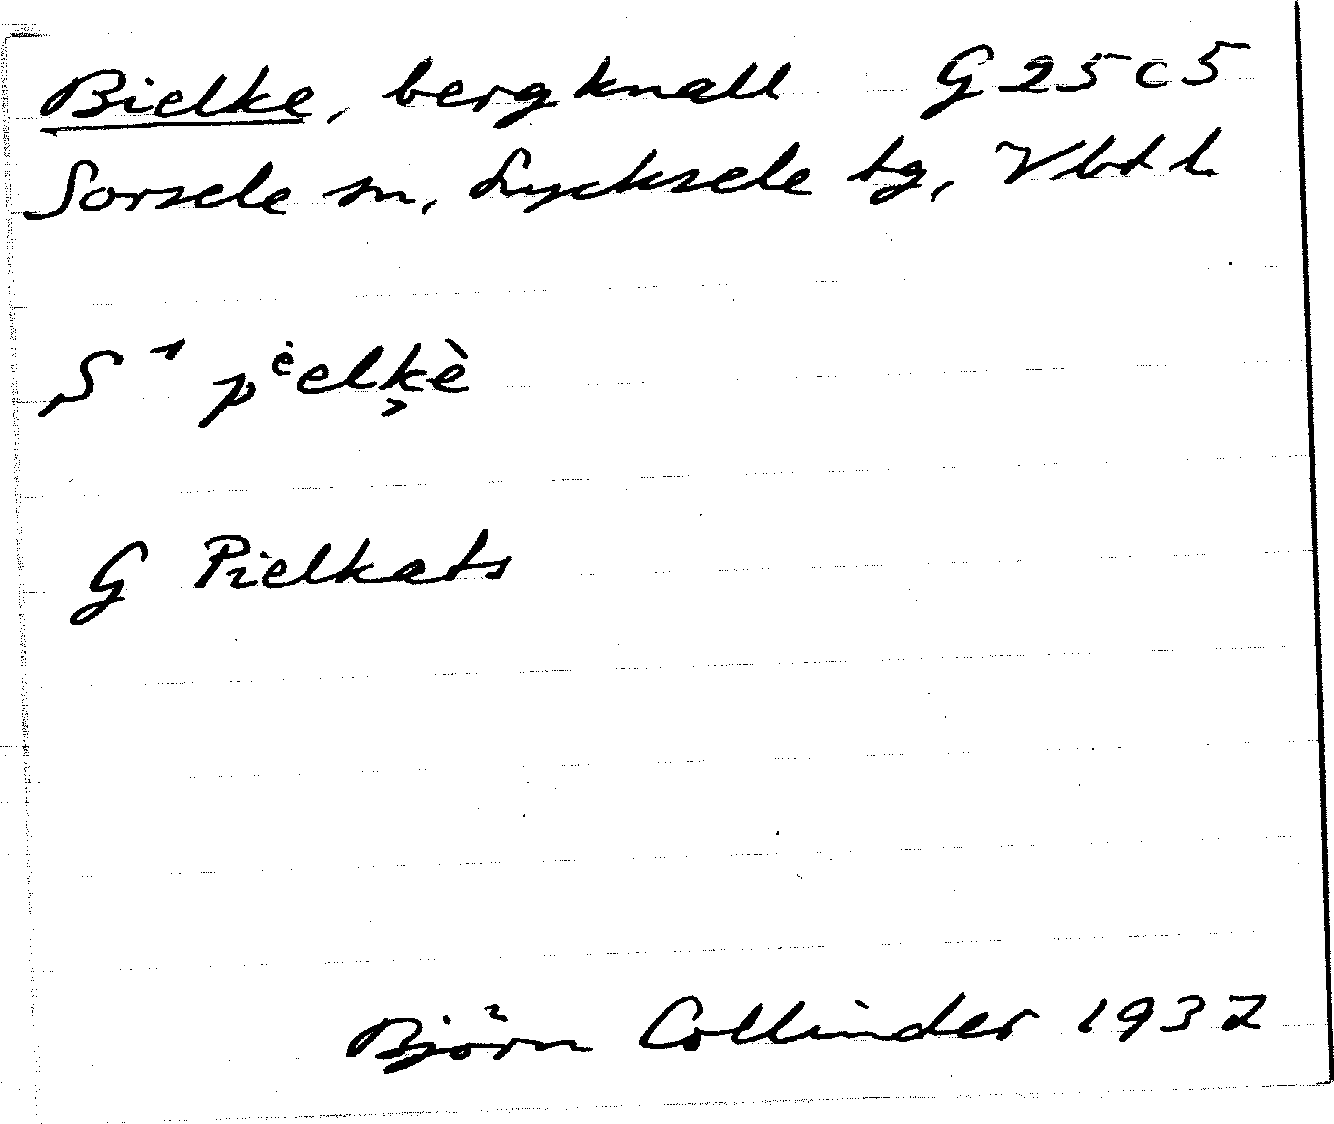 Bielke, bergknall G 25 c 5
Sorsele sn, Lycksele tg, Vbtl
S ⁊ pėelk̭è
G Pielkats
Björn Collinder 1937